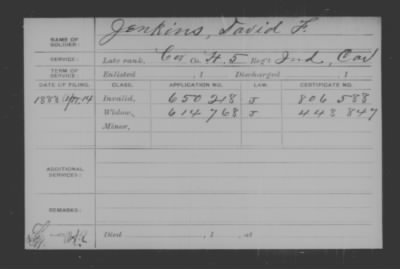 NAME OF SOLDIER: Jenkins, David F.
SERVICE: Late rank, Co Co. H. 5 Reg't Ind, Cav
TERM OF SERVICE: Enlisted , 1 Discharged , 1
DATE OF FILING. CLASS. APPLICATION NO. LAW. CERTIFICATE NO.
1888 14 Invalid, 650 218 J 806 588
Widow, 614 768 J 443 847
Minor,
ADDITIONAL SERVICES:
REMARKS:
Died , 1 , at